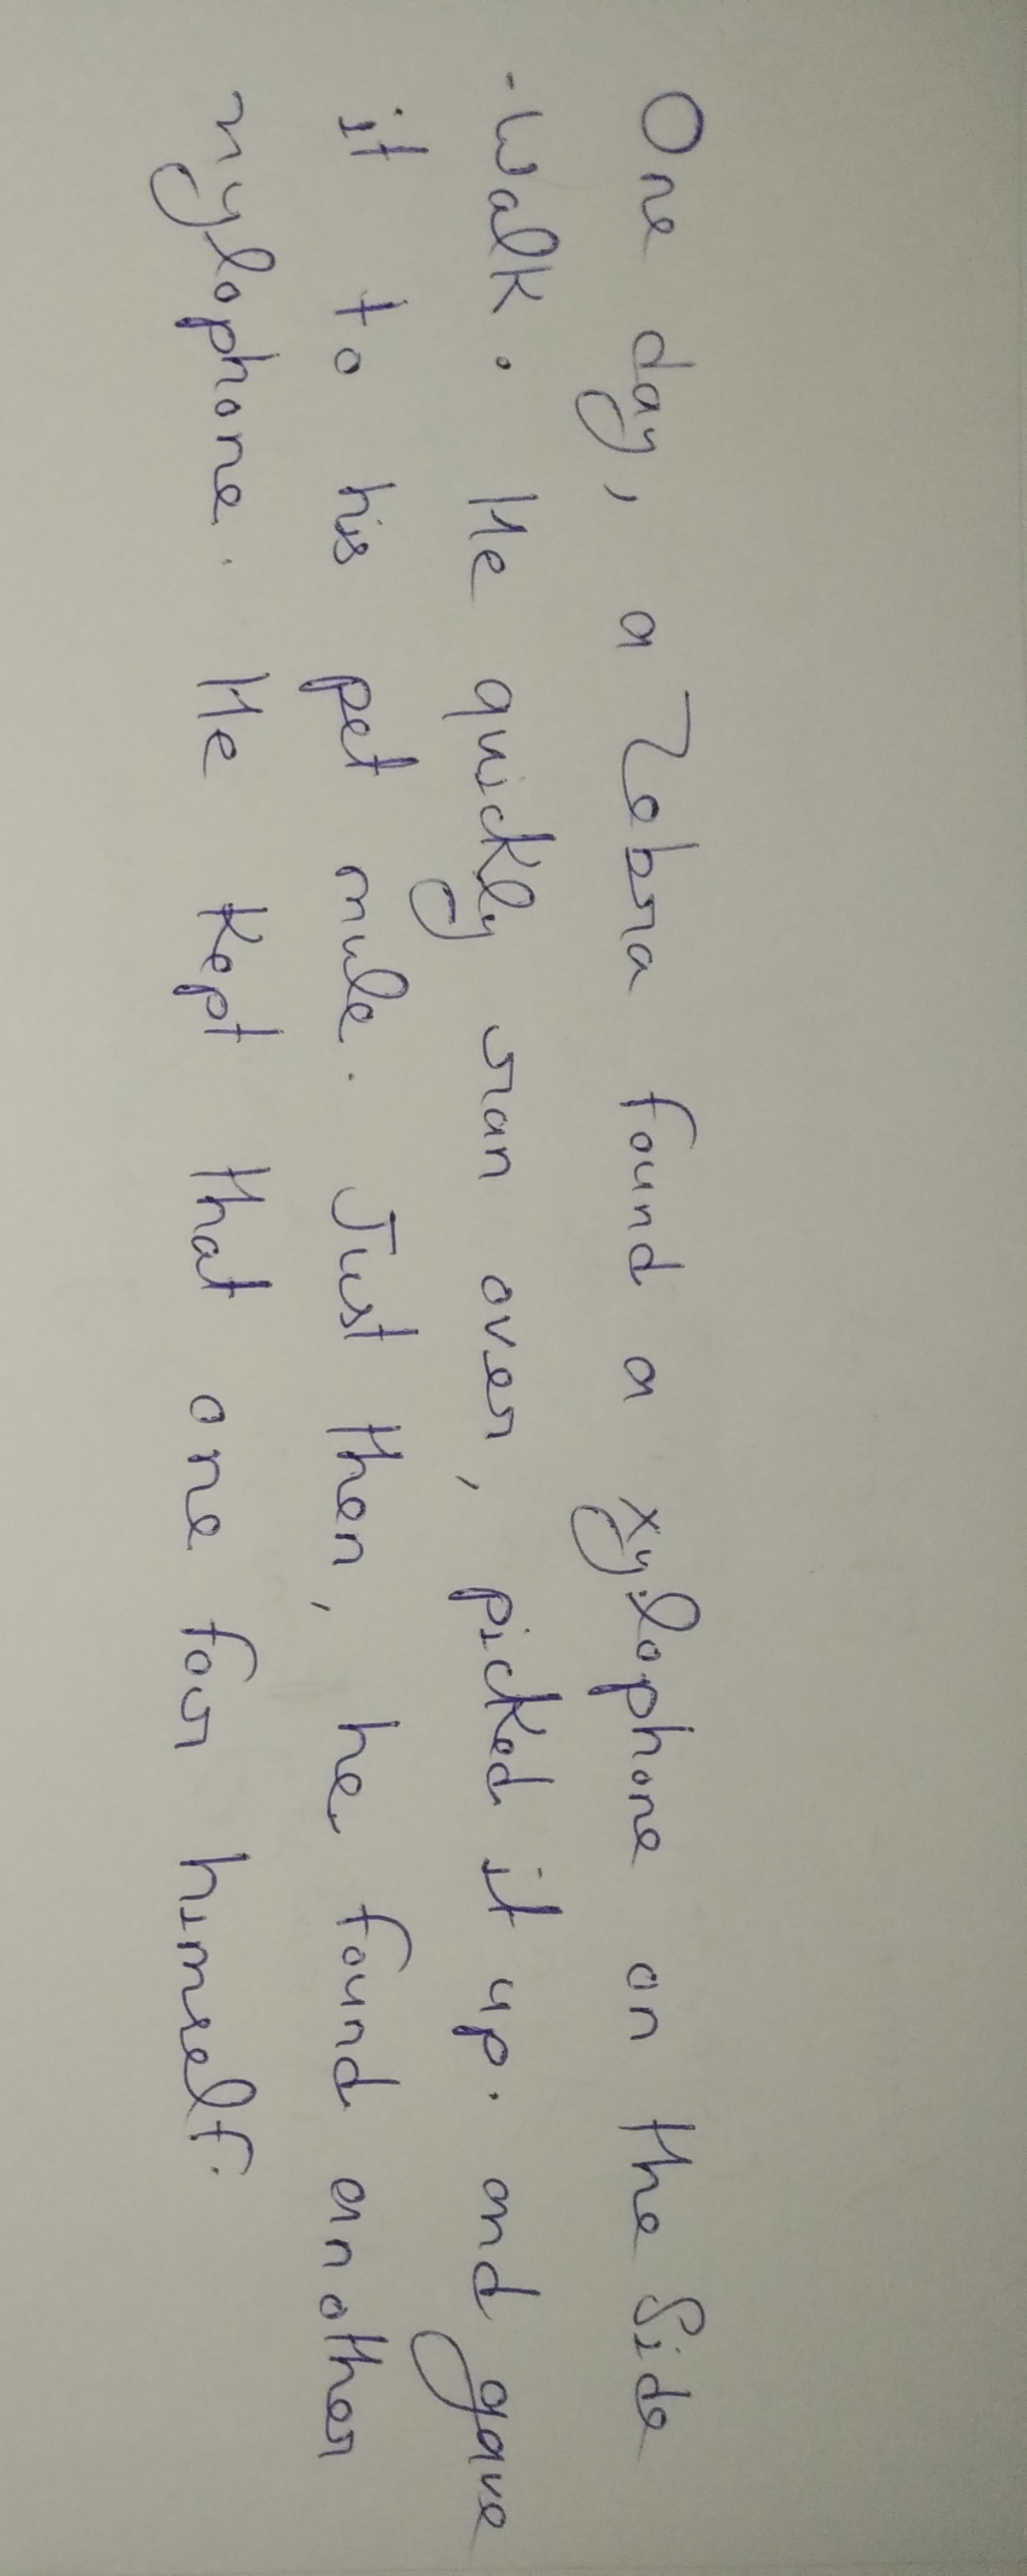 One day, a Zebra found a xylophone on the Side
-Walk. He quickly ran over, picked it up. and gave
it to his pet mule. Just then, he found another
xylophone. He kept that one for himself.